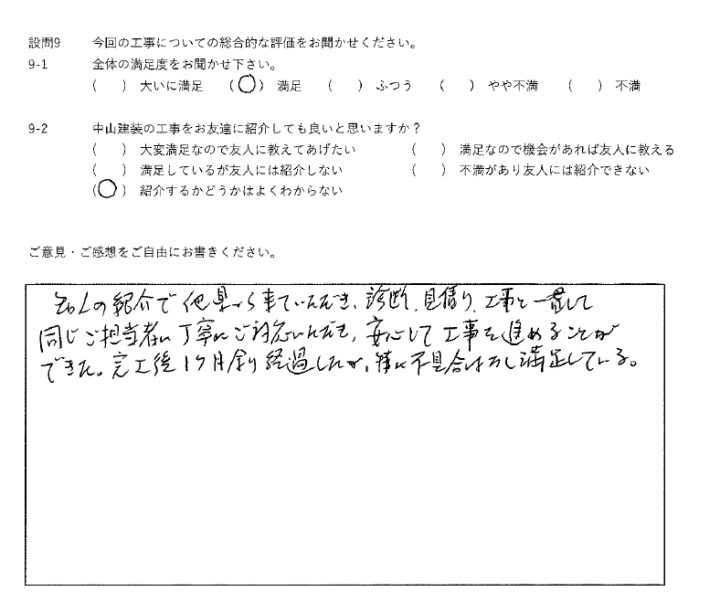 設問9 今回の工事についての総合的な評価をお聞かせください。
9-1 全体の満足度をお聞かせ下さい。
( ) 大いに満足 (○) 満足 ( ) ふつう ( ) やや不満 ( ) 不満
9-2 中山建装の工事をお友達に紹介しても良いと思いますか?
( ) 大変満足なので友人に教えてあげたい ( ) 満足なので機会があれば友人に教える
( ) 満足しているが友人には紹介しない ( ) 不満があり友人には紹介できない
(○) 紹介するかどうかはよくわからない
ご意見・ご感想をご自由にお書きください。
知人の紹介で他県から来ていただき、診断、見積り、工事と一貫して
同じご担当者に丁寧にご対応いただき、安心して工事を進めることが
できた。完工後1ヶ月余り経過したが、特に不具合はなし満足している。